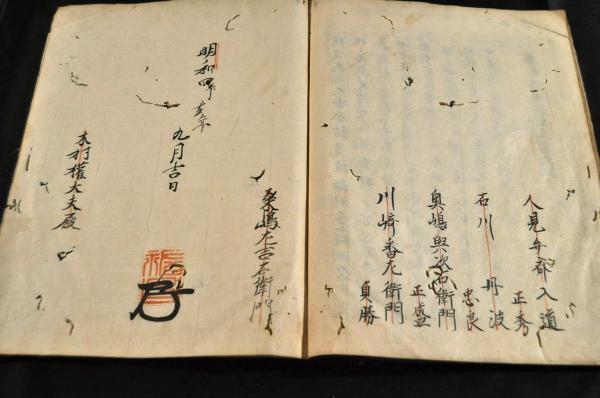 人見弁都入道
正秀
石川 丹波
忠良
奥嶋與次右衛門
正盛
川﨑番左衛門
貞勝
桑嶋左吉右衛門
明和四年
九月吉日
木村權太夫殿